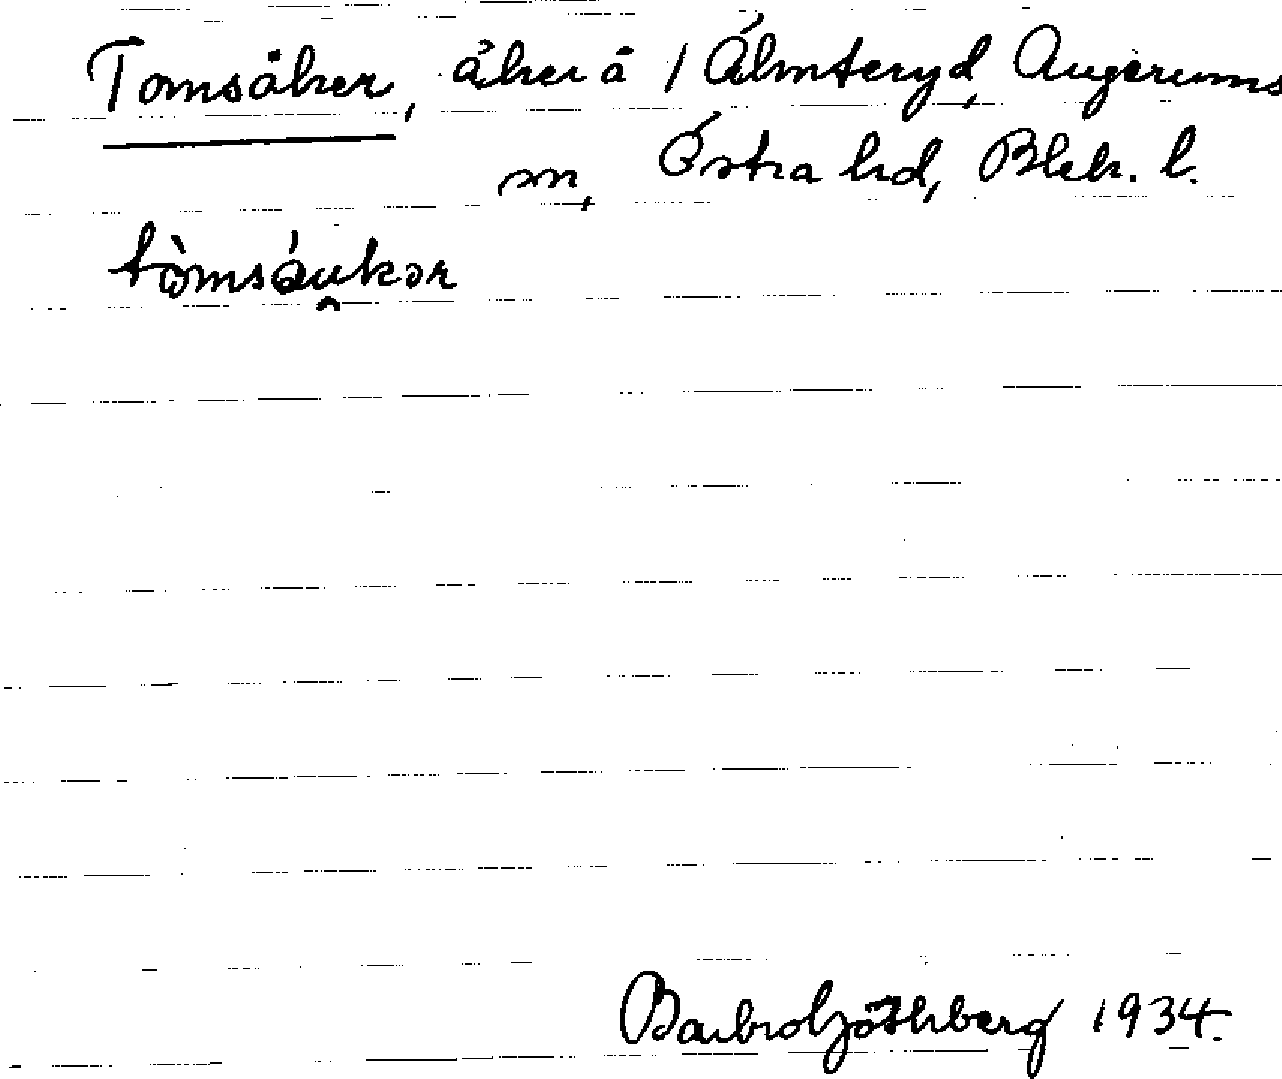 Tomsåker, åker å 1 Älmteryd, Augerums
sn, Östra hd, Blek. l.
tòmsáu̯kər
Barbro Göthberg 1934.